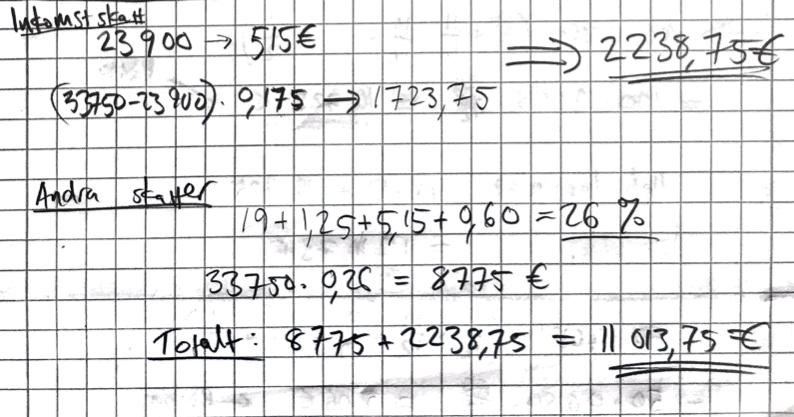 Inkomstskatt
23 900 → 515€
⟹ 2238,75€
(33750-23900) · 0,175 → 1723,75
Andra skatter
19+1,25+5,15+0,60 = 26 %
33750 · 0,26 = 8775 €
Totalt: 8775+2238,75 = 11 013,75 €